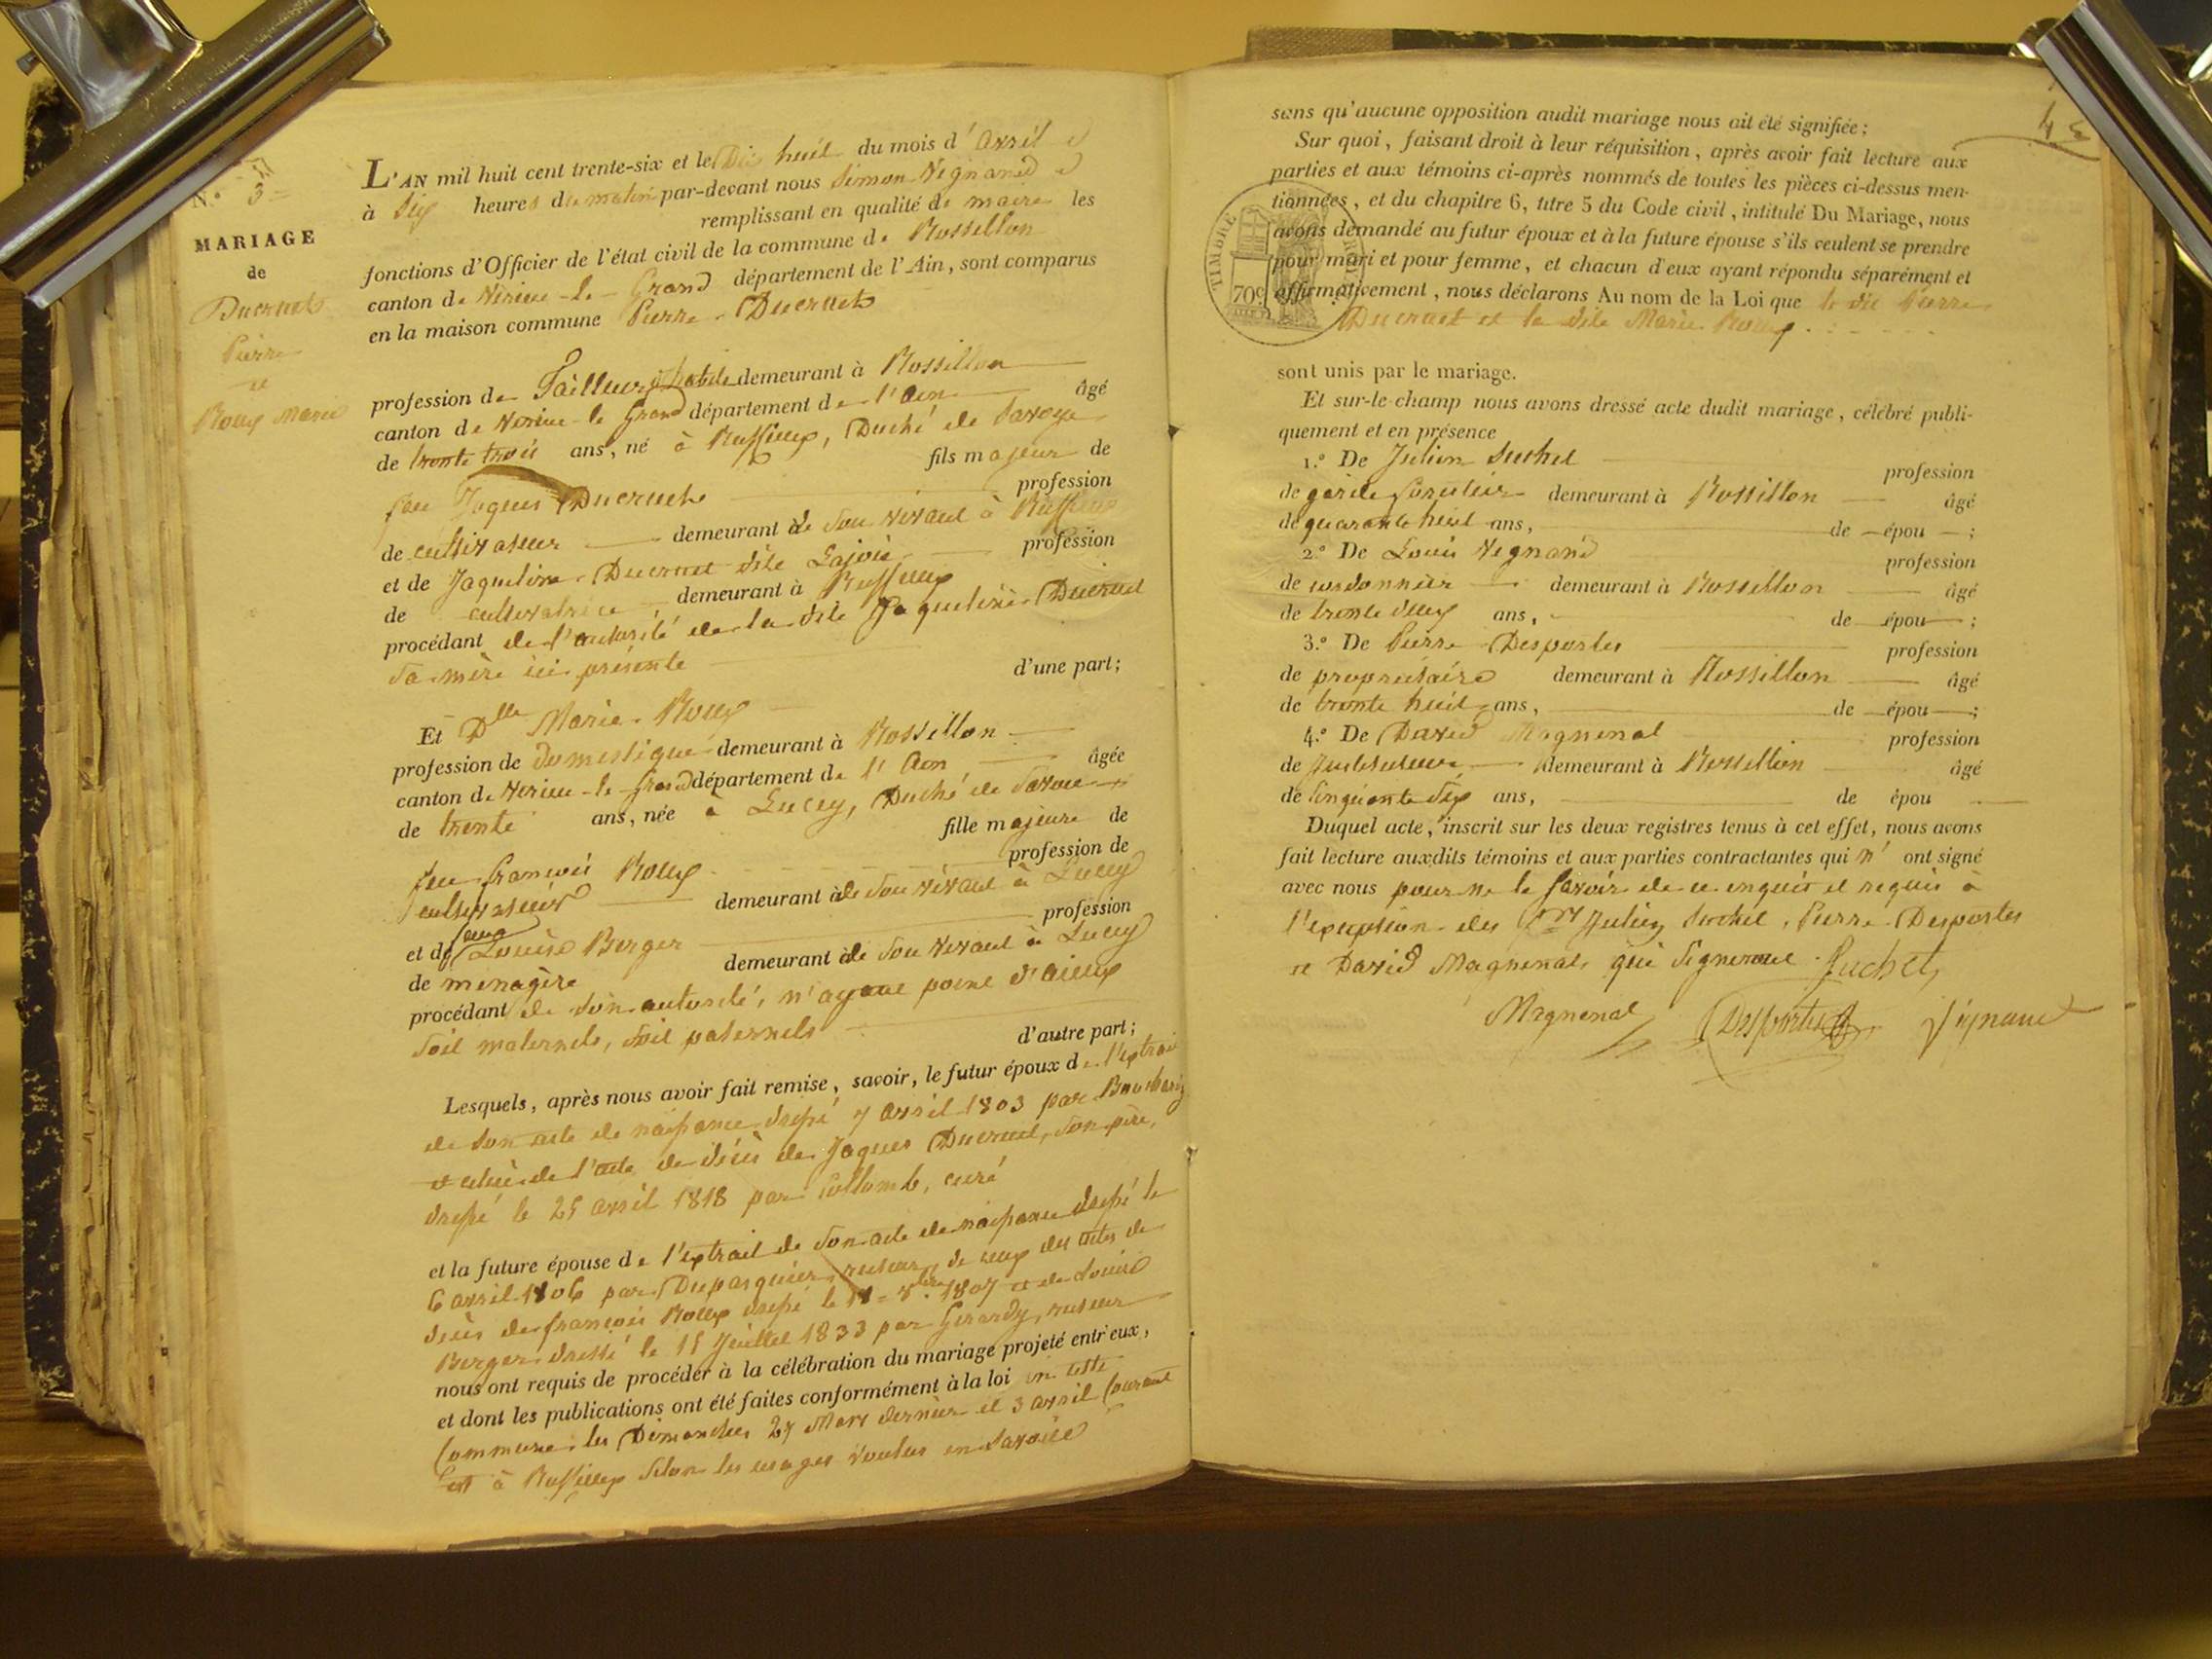 N.° 3=
MARIAGE
de
Ducruet
Pierre
et
Roux Marie
L'AN mil huit cent trente-six et le Dix huit du mois d'avril
à Six heures du matin par-devant nous Simon Vignand
remplissant en qualité de maire les
fonctions d'Officier de l'état civil de la commune de Rossillon
canton de Virieu-le-Grand département de l'Ain, sont comparus
en la maison commune Pierre Ducruet
profession de Tailleur d'habits demeurant à Rossillon
canton de Virieu-le Grand département de l'ain âgé
de trente trois ans, né à Ruffieux, Duché de Savoye
fils majeur de
feu Jaques Ducruet profession
de cultivateur demeurant de son vivant à Ruffieux
et de Jaqueline Ducruet dite Lajoie profession
de cultivatrice, demeurant à Ruffieux
procédant de l'autorité de la dite Jaqueline Ducruet
sa mère ici présente d'une part;
Et Dlle Marie Roux
profession de domestique demeurant à Rossillon
canton de Virieu-le-Grand département de l'Ain âgée
de trente ans, née à Lucey, Duché de Savoie
fille majeure de
feu françois Roux profession de
cultivateur demeurant de son vivant à Lucey
et de feue Louise Berger profession
de menagère demeurant de son vivant à Lucey
procédant de son autorité, n'ayant point d'aieux
soit maternels, soit paternels d'autre part;
Lesquels, après nous avoir fait remise, savoir, le futur époux de l'extrait
de son acte de naissance dressé 7 avril 1803 par
et celui de l'acte de décès de Jaques Ducruet, son père,
dressé le 25 avril 1818 par Collomb, curé
et la future épouse de l'extrait de son acte de naissance dressé le
6 avril 1806 par Dupasquier, recteur, de ceux des actes de
décès de françois Roux dressé le 18 = 8.bre 1807 et de Louise
Berger dressé le 15 Juillet 1833 par Gerardy, recteur
nous ont requis de procéder à la célébration du mariage projeté entr'eux,
et dont les publications ont été faites conformément à la loi en cette
Commune les Dimanches 27 Mars dernier et 3 avril Courant
et à Ruffieux selon les usages voulus en Savoie
sans qu'aucune opposition audit mariage nous ait été signifiée;
Sur quoi, faisant droit à leur réquisition, après avoir fait lecture aux
parties et aux témoins ci-après nommés de toutes les pièces ci-dessus men-
tionnées, et du chapitre 6, titre 5 du Code civil, intitulé Du Mariage, nous
avons demandé au futur époux et à la future épouse s'ils veulent se prendre
pour mari et pour femme, et chacun d'eux ayant répondu séparément et
affirmativement, nous déclarons Au nom de la Loi que le dit Pierre
Ducruet et la dite Marie Roux.
TIMBRE ROYAL
70c
sont unis par le mariage.
Et sur-le-champ nous avons dressé acte dudit mariage, célébré publi-
quement et en présence
1.° De Julien Suchet profession
de garde forestier demeurant à Rossillon âgé
de quarante huit ans, de épou ;
2.° De Louis Vignand profession
de cordonnier demeurant à Rossillon âgé
de trente deux ans, de épou ;
3.° De Pierre Desportes profession
de propriétaire demeurant à Rossillon âgé
de trente huit ans, de épou ;
4.° De David Magnenat profession
de Instituteur demeurant à Rossillon âgé
de Cinquante Six ans, de épou
Duquel acte, inscrit sur les deux registres tenus à cet effet, nous avons
fait lecture auxdits témoins et aux parties contractantes qui n'ont signé
avec nous pour ne le savoir de ce enquis et requis à
l'exception des Julien Suchet, Pierre Desportes
et David Magnenat, qui signeront. Suchet,
Magnenat Desportes Vignand